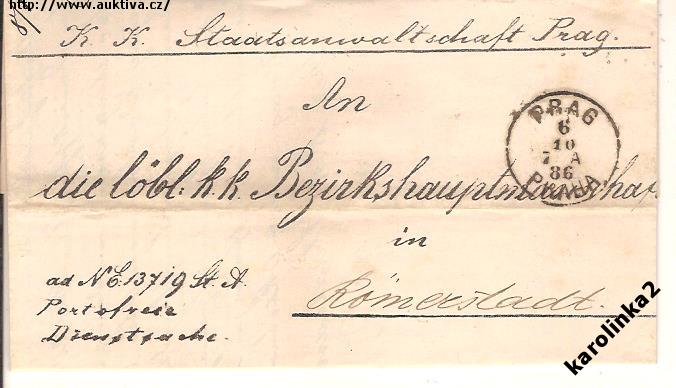 http://www.auktiva.cz/
K. K. Staatsanwaltschaft Prag.
An
PRAG
6
10
7 A
86
PRAHA
die löbl: k. k. Bezirkshauptmannschaf
in
Römerstadt.
ad NE. 13719 St. A.
Portofreie
Dienstsache.
karolinka2